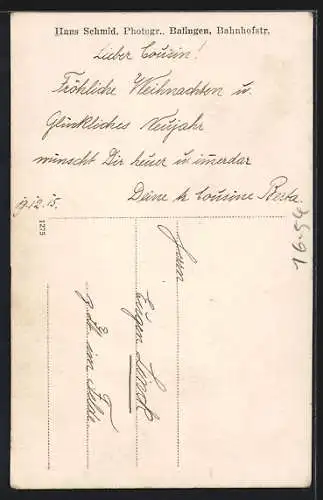 Hans Schmid, Photogr., Balingen, Bahnhofstr.
Lieber Cousin!
Fröhliche Weihnachten u.
Glückliches Neujahr
wünscht Dir heuer u. im̄erdar
Deine tr. Cousine Berta
19.12.15.
1275
Herrn
Eugen
z. Zt. im Felde